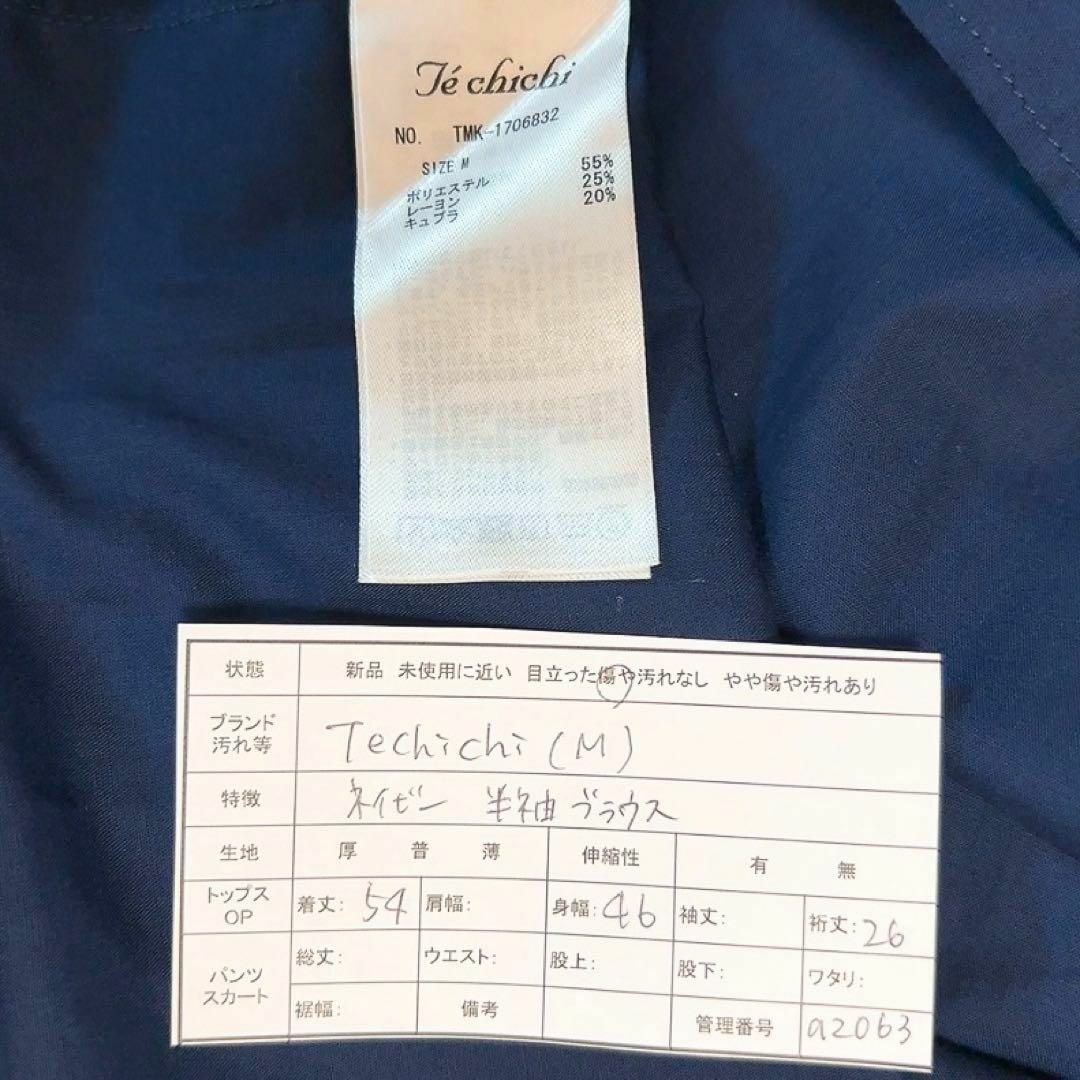 Té chichi
NO. TMK-1706832
SIZE M
ポリエステル 55%
レーヨン 25%
キュプラ 20%
状態 新品 未使用に近い 目立った傷や汚れなし やや傷や汚れあり
ブランド
汚れ等 Techichi (M)
特徴 ネイビー 半袖 ブラウス
生地 厚 普 薄 伸縮性 有 無
トップス
OP 着丈: 54 肩幅: 身幅: 46 袖丈: 裄丈: 26
パンツ
スカート 総丈: ウエスト: 股上: 股下: ワタリ:
裾幅: 備考 管理番号 a2063